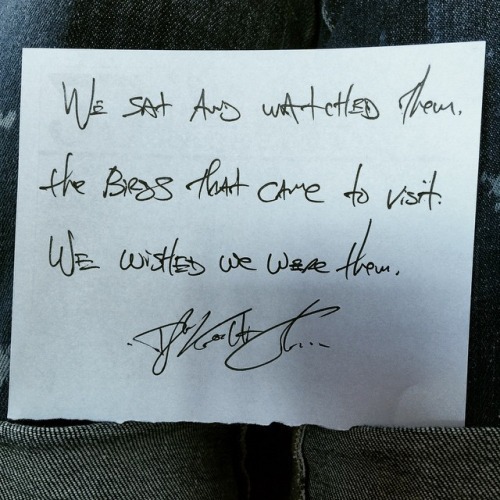 We sat and watched them.
the Birds that came to visit.
We wished we were them.